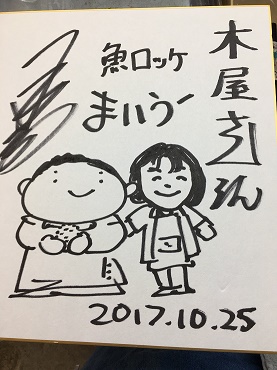 木屋さん
魚ロッケ
まいうー
2017.10.25